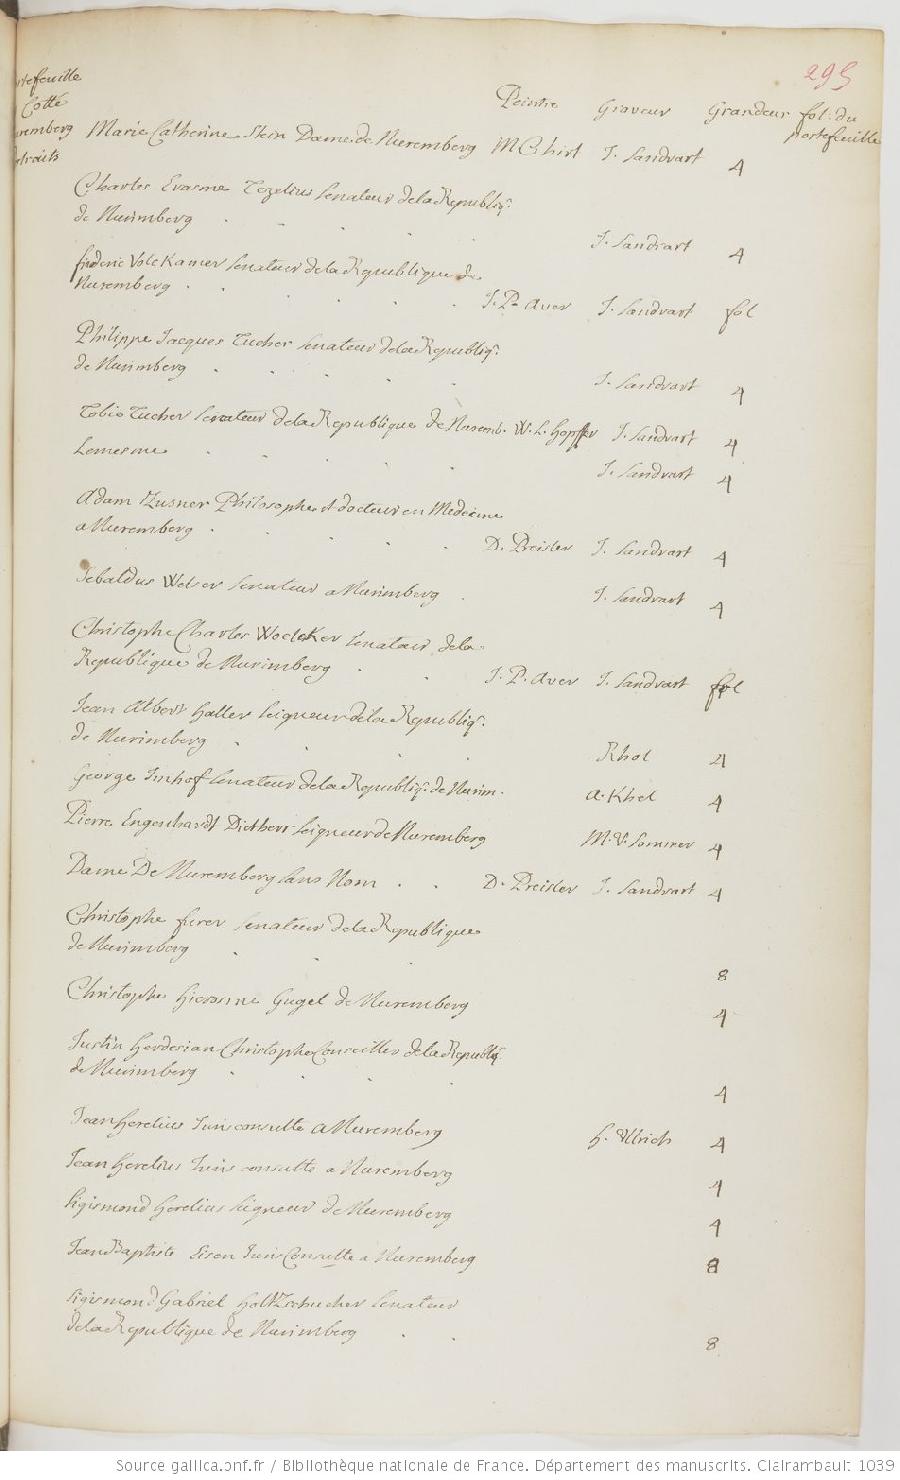 295
Portefeuille Cotté Nuremberg Portraits
Peintre Graveur Grandeur fol. du portefeuille
Marie Catherine Stein Dame de Nuremberg M C hirt J. Sandrart 4
Charles Erasme Tezelius Senateur de la Republiq.
de Nurimberg . . . . J. Sandrart 4
frideric Volckamer Senateur de la Republique de
Nuremberg . . . . . J. P. Aver J. Sandrart fol
Philippe Jacques Tucher Senateur de la Republiq.
de Nurimberg . . . . . J. Sandrart 4
Tobie Tucher Senateur de la Republique de Nuremb. W. L. Hopffer J. Sandrart 4
Lemesme . . . . . J. Sandrart 4
Adam Zusner Philosophe et docteur en Medecine
a Nuremberg . . . . . D. Preisler J. Sandrart 4
Sebaldus Welser Senateur a Nurimberg . J. Sandrart 4
Christophe Charles Woelcker Senateur de la
Republique de Nurimberg . . J. P. Aver J. Sandrart fol
Jean Albert haller Seigneur de la Republiq.
de Nurimberg . . . . Rhol 4
George Imhof Senateur de la Republiq. de Nurim. A. Khol 4
Pierre Engenhardt Dietherr Seigneur de Nuremberg M. V. Somner 4
Dame De Nuremberg sans Nom . . D. Preisler J. Sandrart 4
Christophe furer Senateur de la Republique
de Nurimberg . . . 8
Christophe hierosme Gugel de Nuremberg 4
Justin herdesian Christophe Conseiller de la Republiq
de Nurimberg . . . . 4
Jean herelius Jurisconsulte a Nuremberg H. Ulrich 4
Jean herelius Jurisconsulte a Nuremberg 4
Sigismond herelius Seigneur de Nuremberg 4
Jean Baptiste Jurisconsulte a Nuremberg 8
Sigismond Gabriel holtzschucher Senateur
de la Republique de Nurimberg . . 8
Source gallica.bnf.fr / Bibliothèque nationale de France. Département des manuscrits. Clairambault 1039